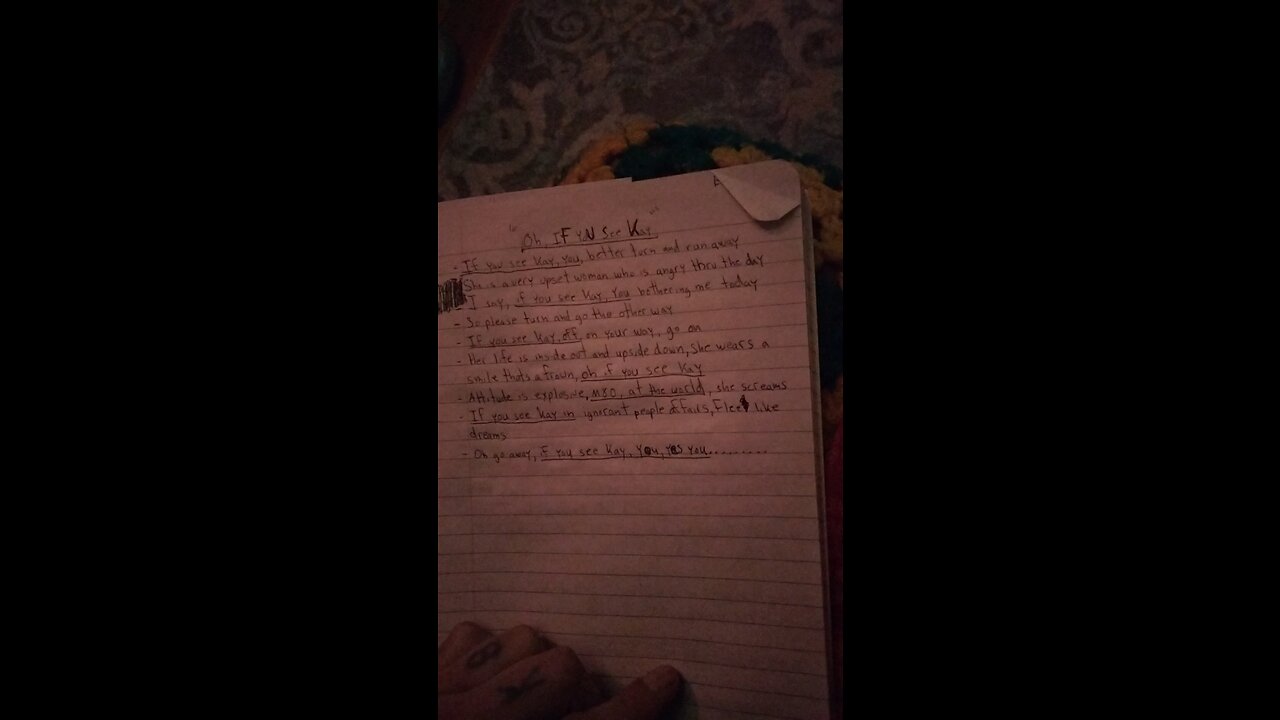 "Oh, IF YOU See Kay"
- If you see Kay, you, better turn and run away
She is a very upset woman who is angry thru the day
I say, if you see Kay, You bothering me today
- So please turn and go the other way
- If you see Kay off on your way, go on
- Her life is inside out and upside down, she wears a
smile thats a frown, oh if you see Kay
- Attitude is explosive, M80, at the world, she screams
- If you see Kay in ignorant people & fads, Flee like
dreams
- Oh go away, if you see Kay, You, Yes You.........